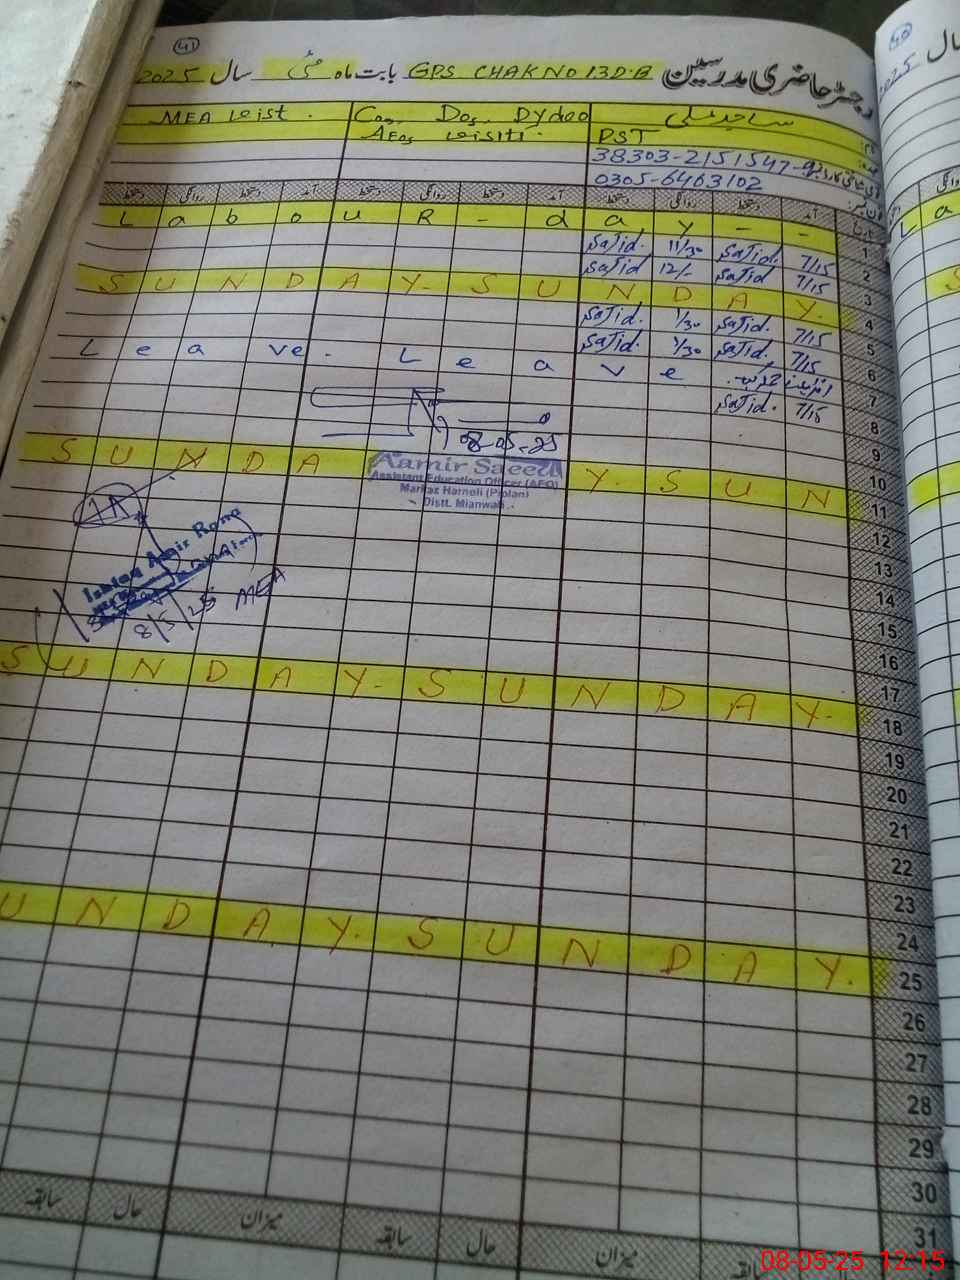 41
رجسٹر حاضری مدرسین GPS CHAK NO 13 D.B بابت ماہ مئی سال 2025
ساجد علی
Coo, Dos, Dydeo
MEA
PST
AEOs
38303-2151547-9
0305-6463102
آمد دستخط روانگی دستخط آمد دستخط روانگی دستخط آمد روانگی دستخط
L a b o u R - d a y - -
1
7/15 Sajid. 11/30 Sajid.
2
7/15 Sajid 12/- Sajid
3
S U N D A Y. S U N D A Y.
4
7/15 Sajid. 1/30 Sajid.
5
7/15 Sajid, 1/30 Sajid.
6
L e a ve. L e a v e
7
7/15 Sajid.
8
08-05-25
9
S U N D A Y. S U N
10
11
Aamir Saeed
Assistant Education Officer (AEO)
Markaz Harnoli (Piplan)
Distt. Mianwali
12
13
14
8/5/25 MEA
15
16
17
S U N D A Y. S U N D A Y.
18
19
20
21
22
23
24
U N D A Y. S U N D A Y.
25
26
27
28
29
30
31
میزان حال سابقہ میزان حال سابقہ
40
سال
2025
08-05-25 12:15